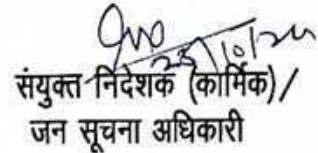 25/10/24
संयुक्त निदेशक (कार्मिक)/
जन सूचना अधिकारी